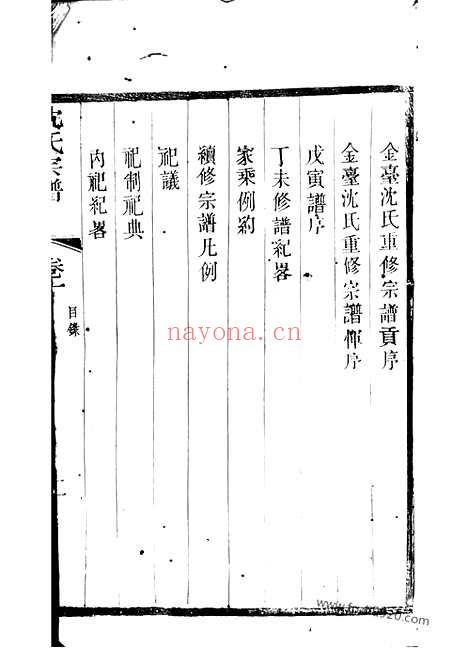 金臺沈氏重修宗譜貢序
金臺沈氏重修宗譜惲序
戊寅譜序
丁未修譜紀畧
家乘例約
續修宗譜凡例
祀議
祀制祀典
內祀紀畧
沈氏宗譜
目錄
nayona.cn